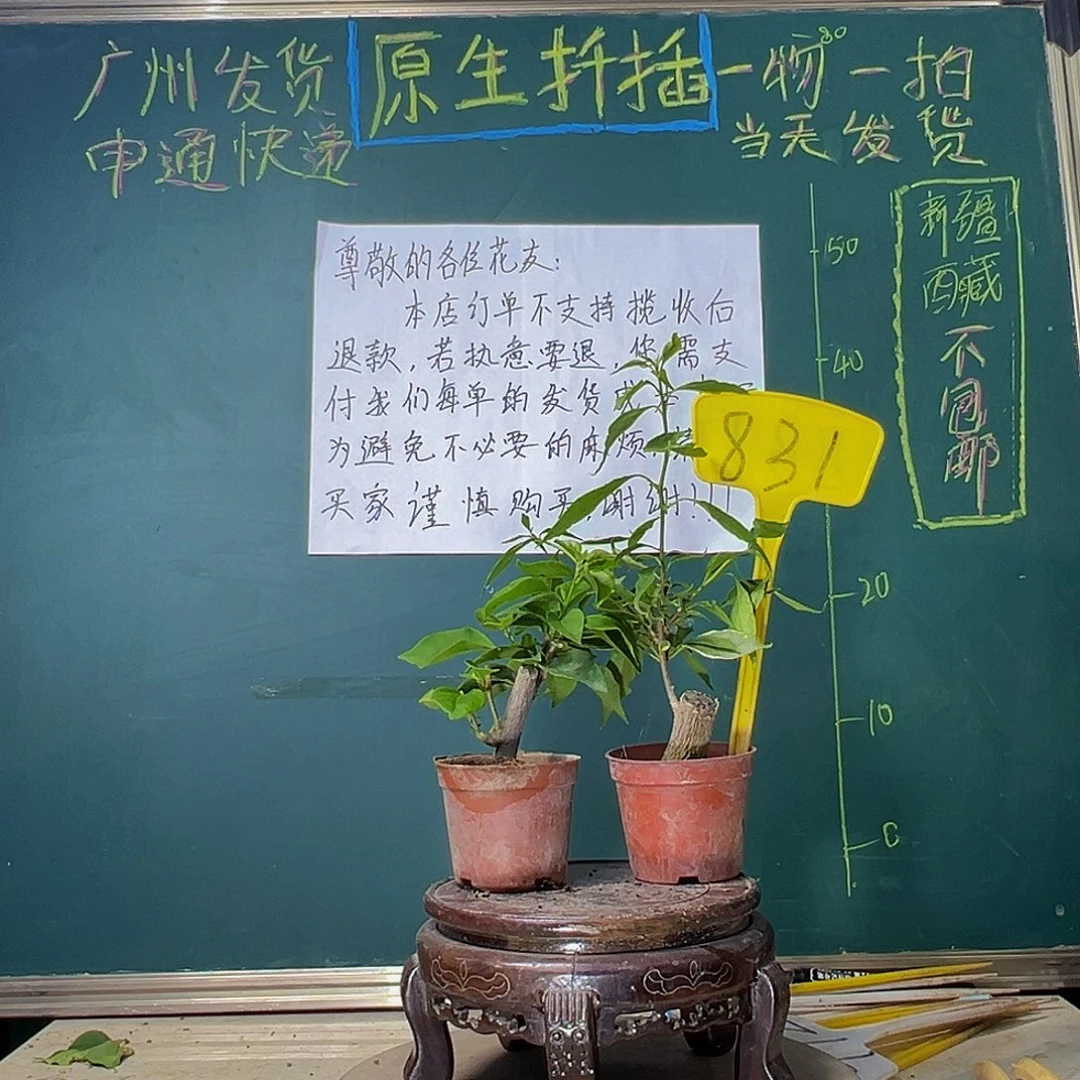 广州发货
申通快递
原生扦插
一物一拍
80
当天发货
新疆
西藏
不
包
邮
尊敬的各位花友:
本店订单不支持揽收后
退款,若执意要退,你需支
付我们每单的发货成
为避免不必要的麻烦
买家谨慎购买,谢谢!!!
831
50
40
20
10
0